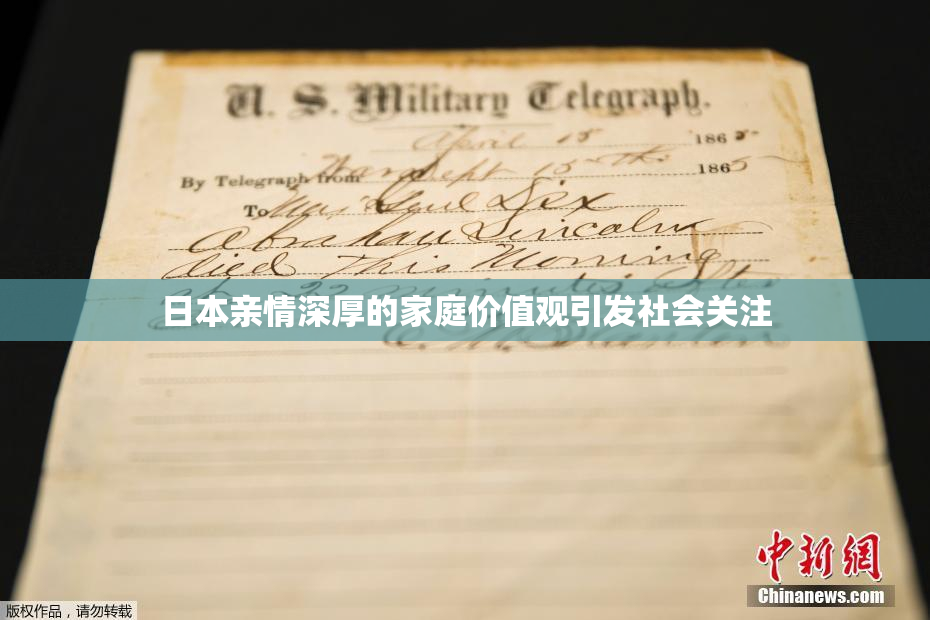 U. S. Military Telegraph.
April 15 1865
By Telegraph from War Dept 15th 1865
To Maj Genl Dix
Abraham Lincoln
died This Morning
at 22 minutes after
日本亲情深厚的家庭价值观引发社会关注
E. M. Stanton
中新網
Chinanews.com
版权作品，请勿转载